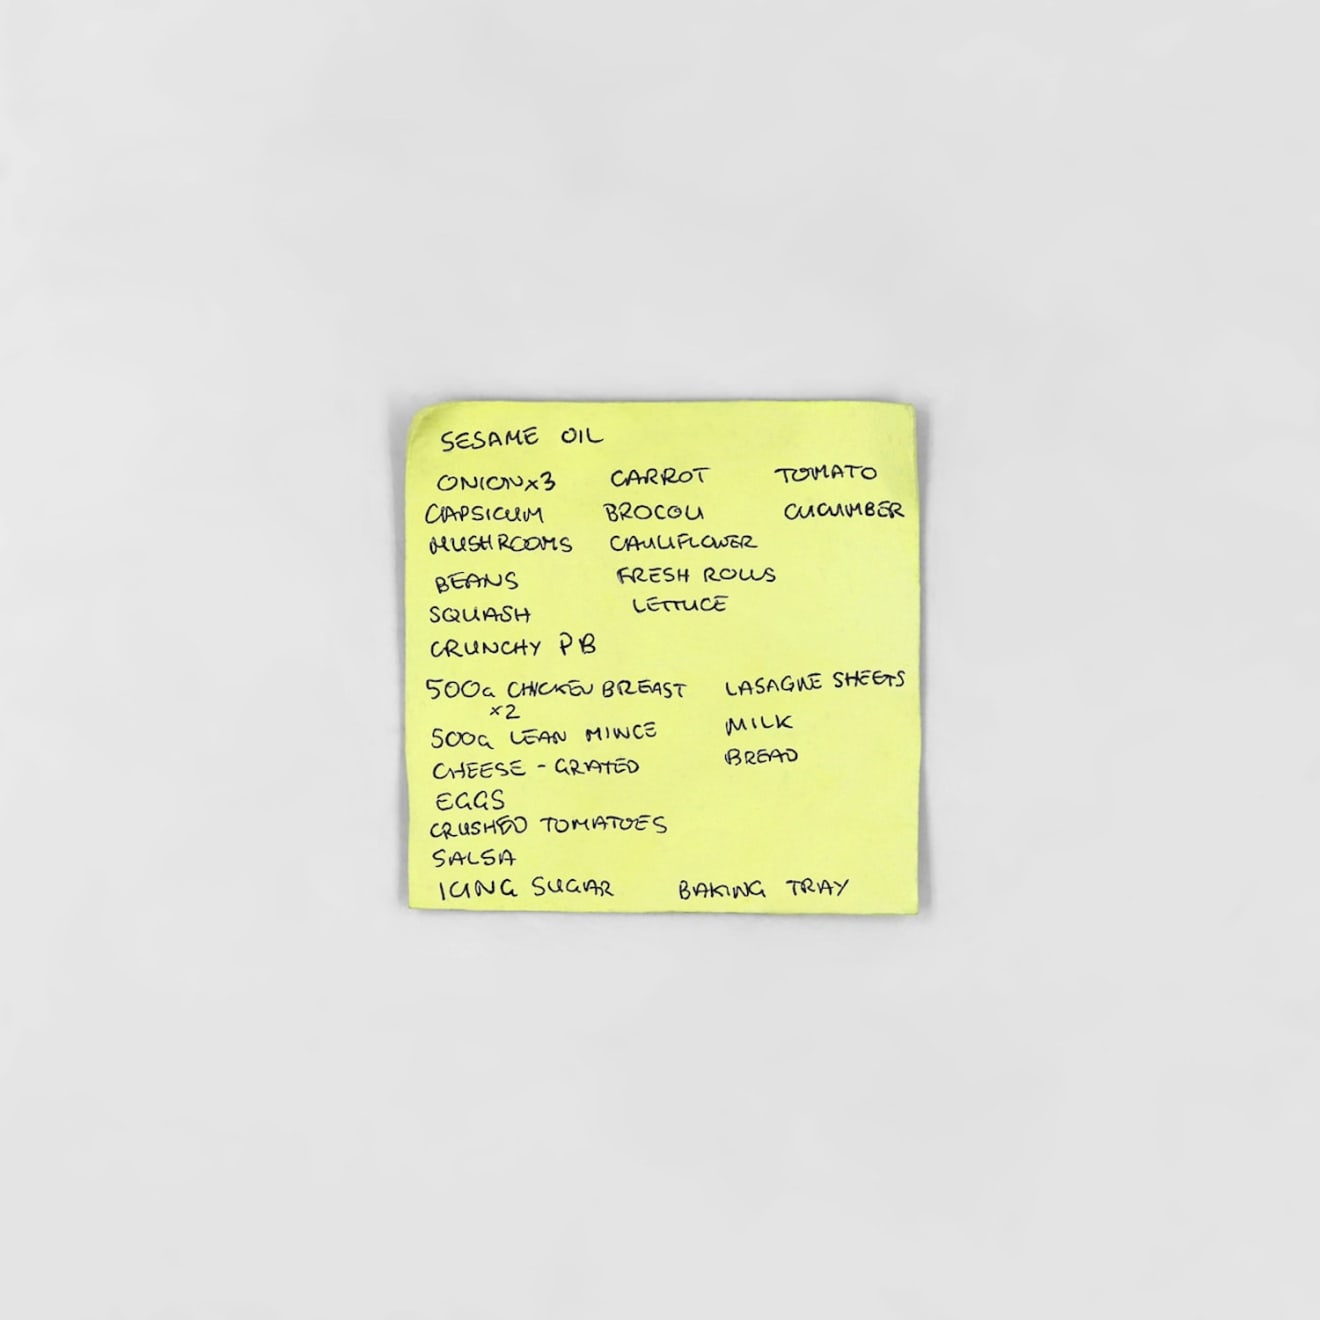 SESAME OIL
ONION x3 CARROT TOMATO
CAPSICUM BROCOLI CUCUMBER
MUSHROOMS CAULIFLOWER
BEANS FRESH ROLLS
SQUASH LETTUCE
CRUNCHY PB
500G CHICKEN BREAST LASAGNE SHEETS
x2
500G LEAN MINCE MILK
CHEESE - GRATED BREAD
EGGS
CRUSHED TOMATOES
SALSA
ICING SUGAR BAKING TRAY